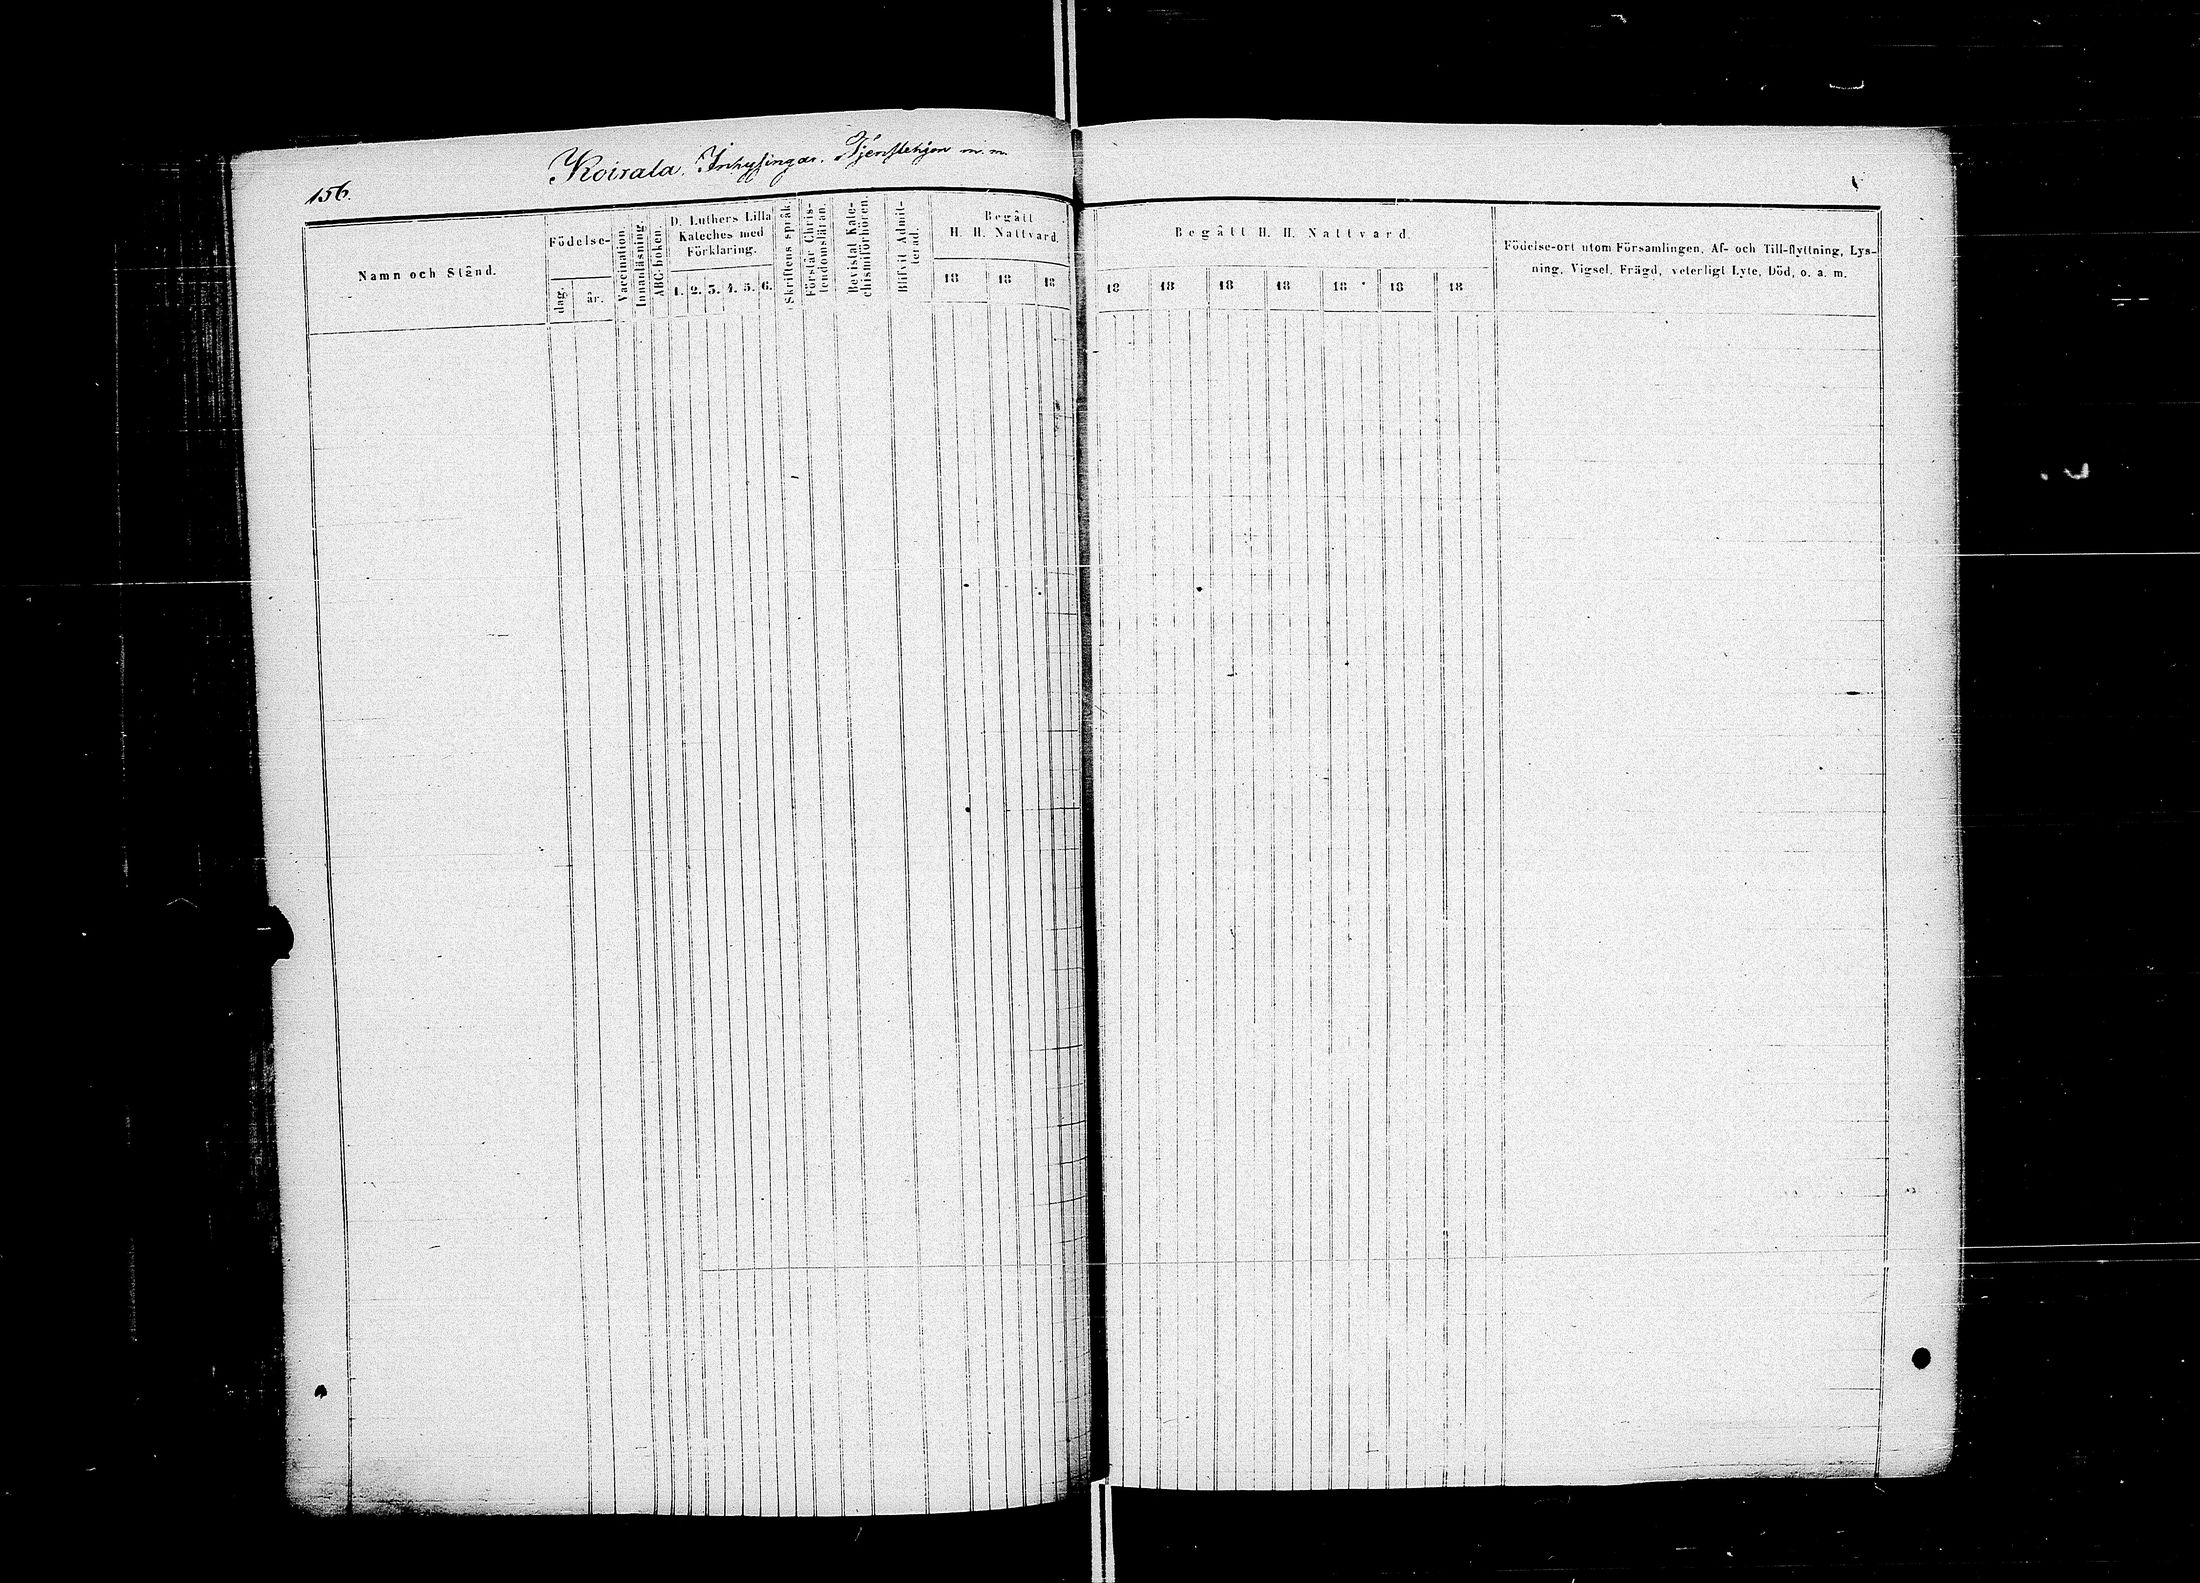 156.
Koirala. Inhysingar. Tjenstehjon m. m.
Namn och Stånd.
Födelse-
dag.
år.
Vaccination.
Innanläsning.
ABC-boken.
D. Luthers Lilla
Kateches med
Förklaring.
1. 2. 3. 4. 5. 6.
Skriftens språk.
Förstår Chris-
tendomsläran.
Bevistat Kate-
chismiförhören.
Blifvit Admit-
terad.
Begått
H. H. Nattvard.
18 18 18
Begått H. H. Nattvard.
18 18 18 18 18 18 18
Födelse-ort utom Församlingen, Af- och Till-flyttning, Lys-
ning, Vigsel, Frägd, veterligt Lyte, Död, o. a. m.